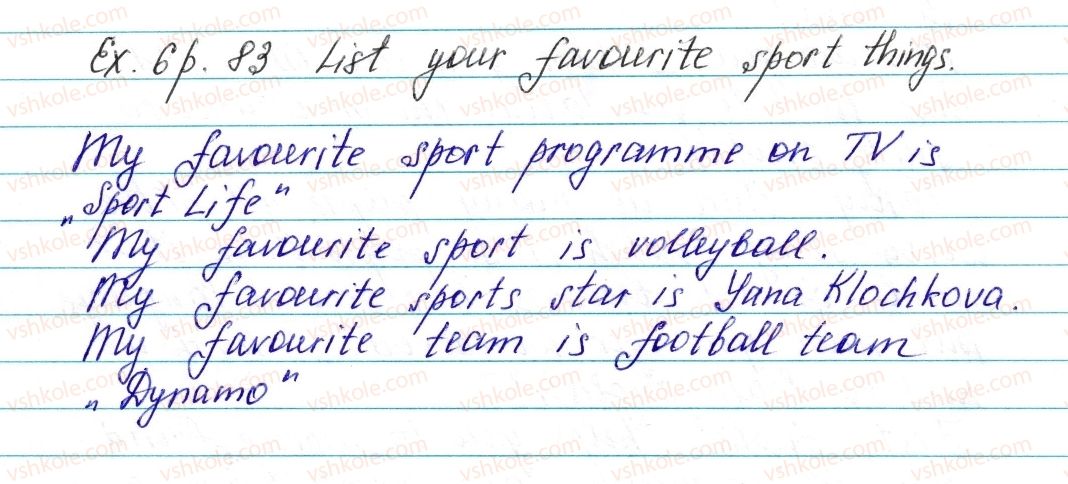 Ex. 6 p. 83 List your favourite sport things.
My favourite sport programme on TV is
„Sport Life"
My favourite sport is volleyball.
My favourite sports star is Yana Klochkova.
My favourite team is football team
„Dynamo"